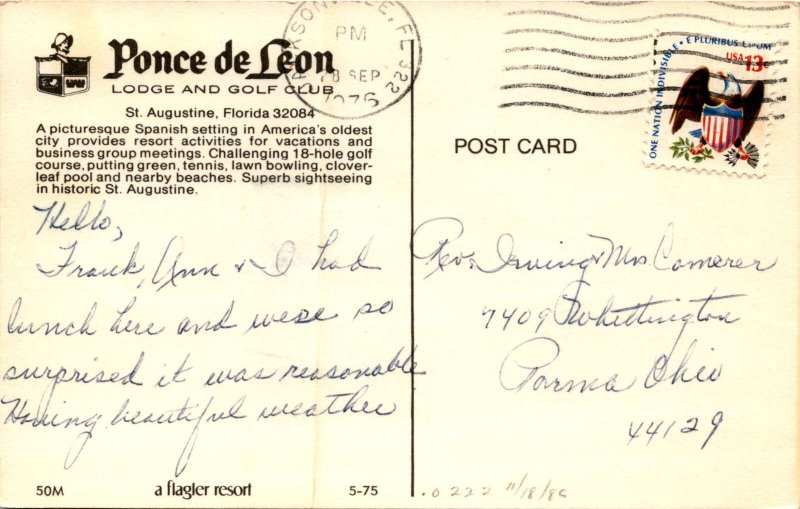 Ponce de León
LODGE AND GOLF CLUB
St. Augustine, Florida 32084
A picturesque Spanish setting in America's oldest
city provides resort activities for vacations and
business group meetings. Challenging 18-hole golf
course, putting green, tennis, lawn bowling, clover-
leaf pool and nearby beaches. Superb sightseeing
in historic St. Augustine.
Hello,
Frank, Ann & I had
lunch here and were so
surprised it was reasonable
Having beautiful weather
50M
a flagler resort
5-75
JACKSONVILLE, FL 322
PM
28 SEP
1976
ONE NATION INDIVISIBLE • E PLURIBUS UNUM
USA 13c
POST CARD
Rev. Irving & Mrs Comerer
7409 Whittington
Parma Ohio
44129
.0222 11/18/86